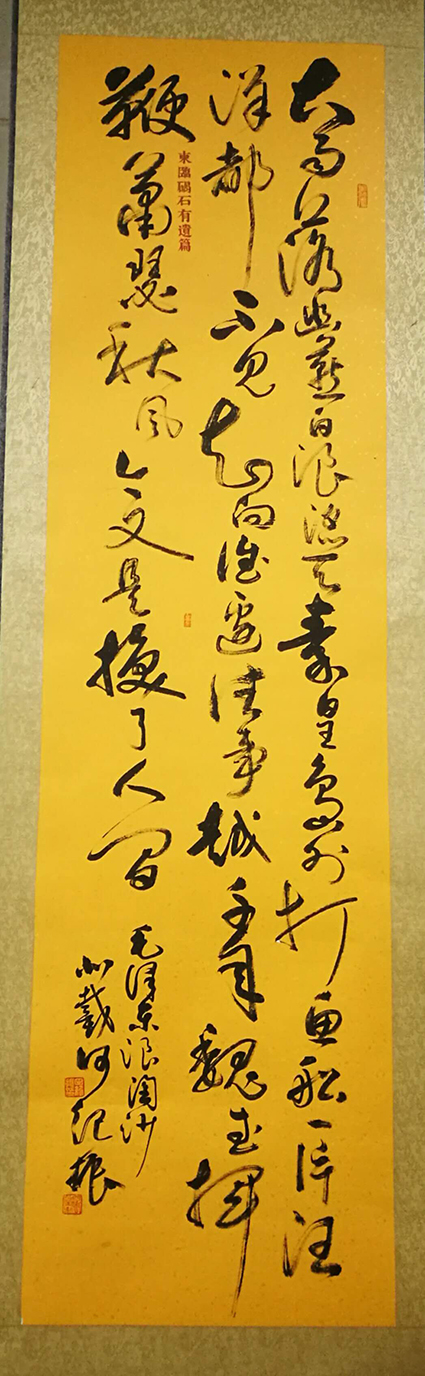 大雨落幽燕白浪滔天秦皇島外打魚船一片汪
洋都不見知向誰邊往事越千年魏武揮
鞭蕭瑟秋風今又是換了人間
東臨碣石有遺篇
毛澤東浪淘沙
北戴河記振